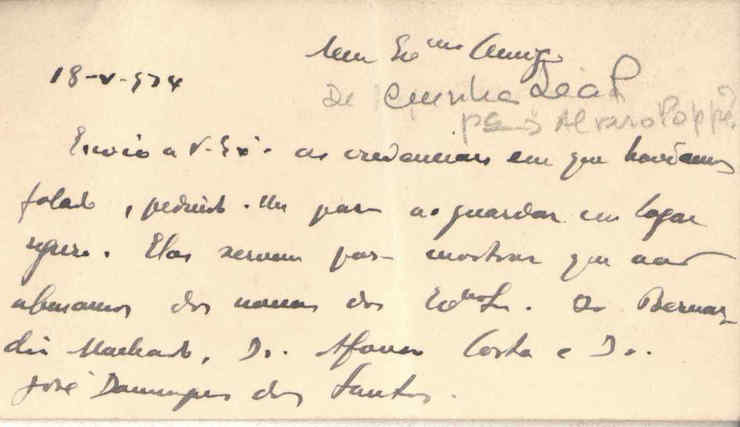 Meu Ex.mo Amigo
18-V-934
De Cunha Leal
para Alvaro Poppe
Envio a V. Ex.ª as credenciais em que havíamos
falado, pedindo-lhe para as guardar em logar
seguro. Elas servem para mostrar que não
abusamos dos nomes dos Ex.mos Srs. Dr. Bernar-
dino Machado, Dr. Afonso Costa e Dr.
José Domingues dos Santos.